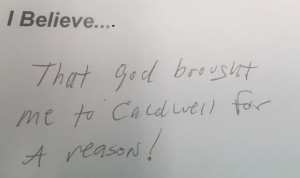 I Believe....
That god brought
me to Caldwell for
A reason!